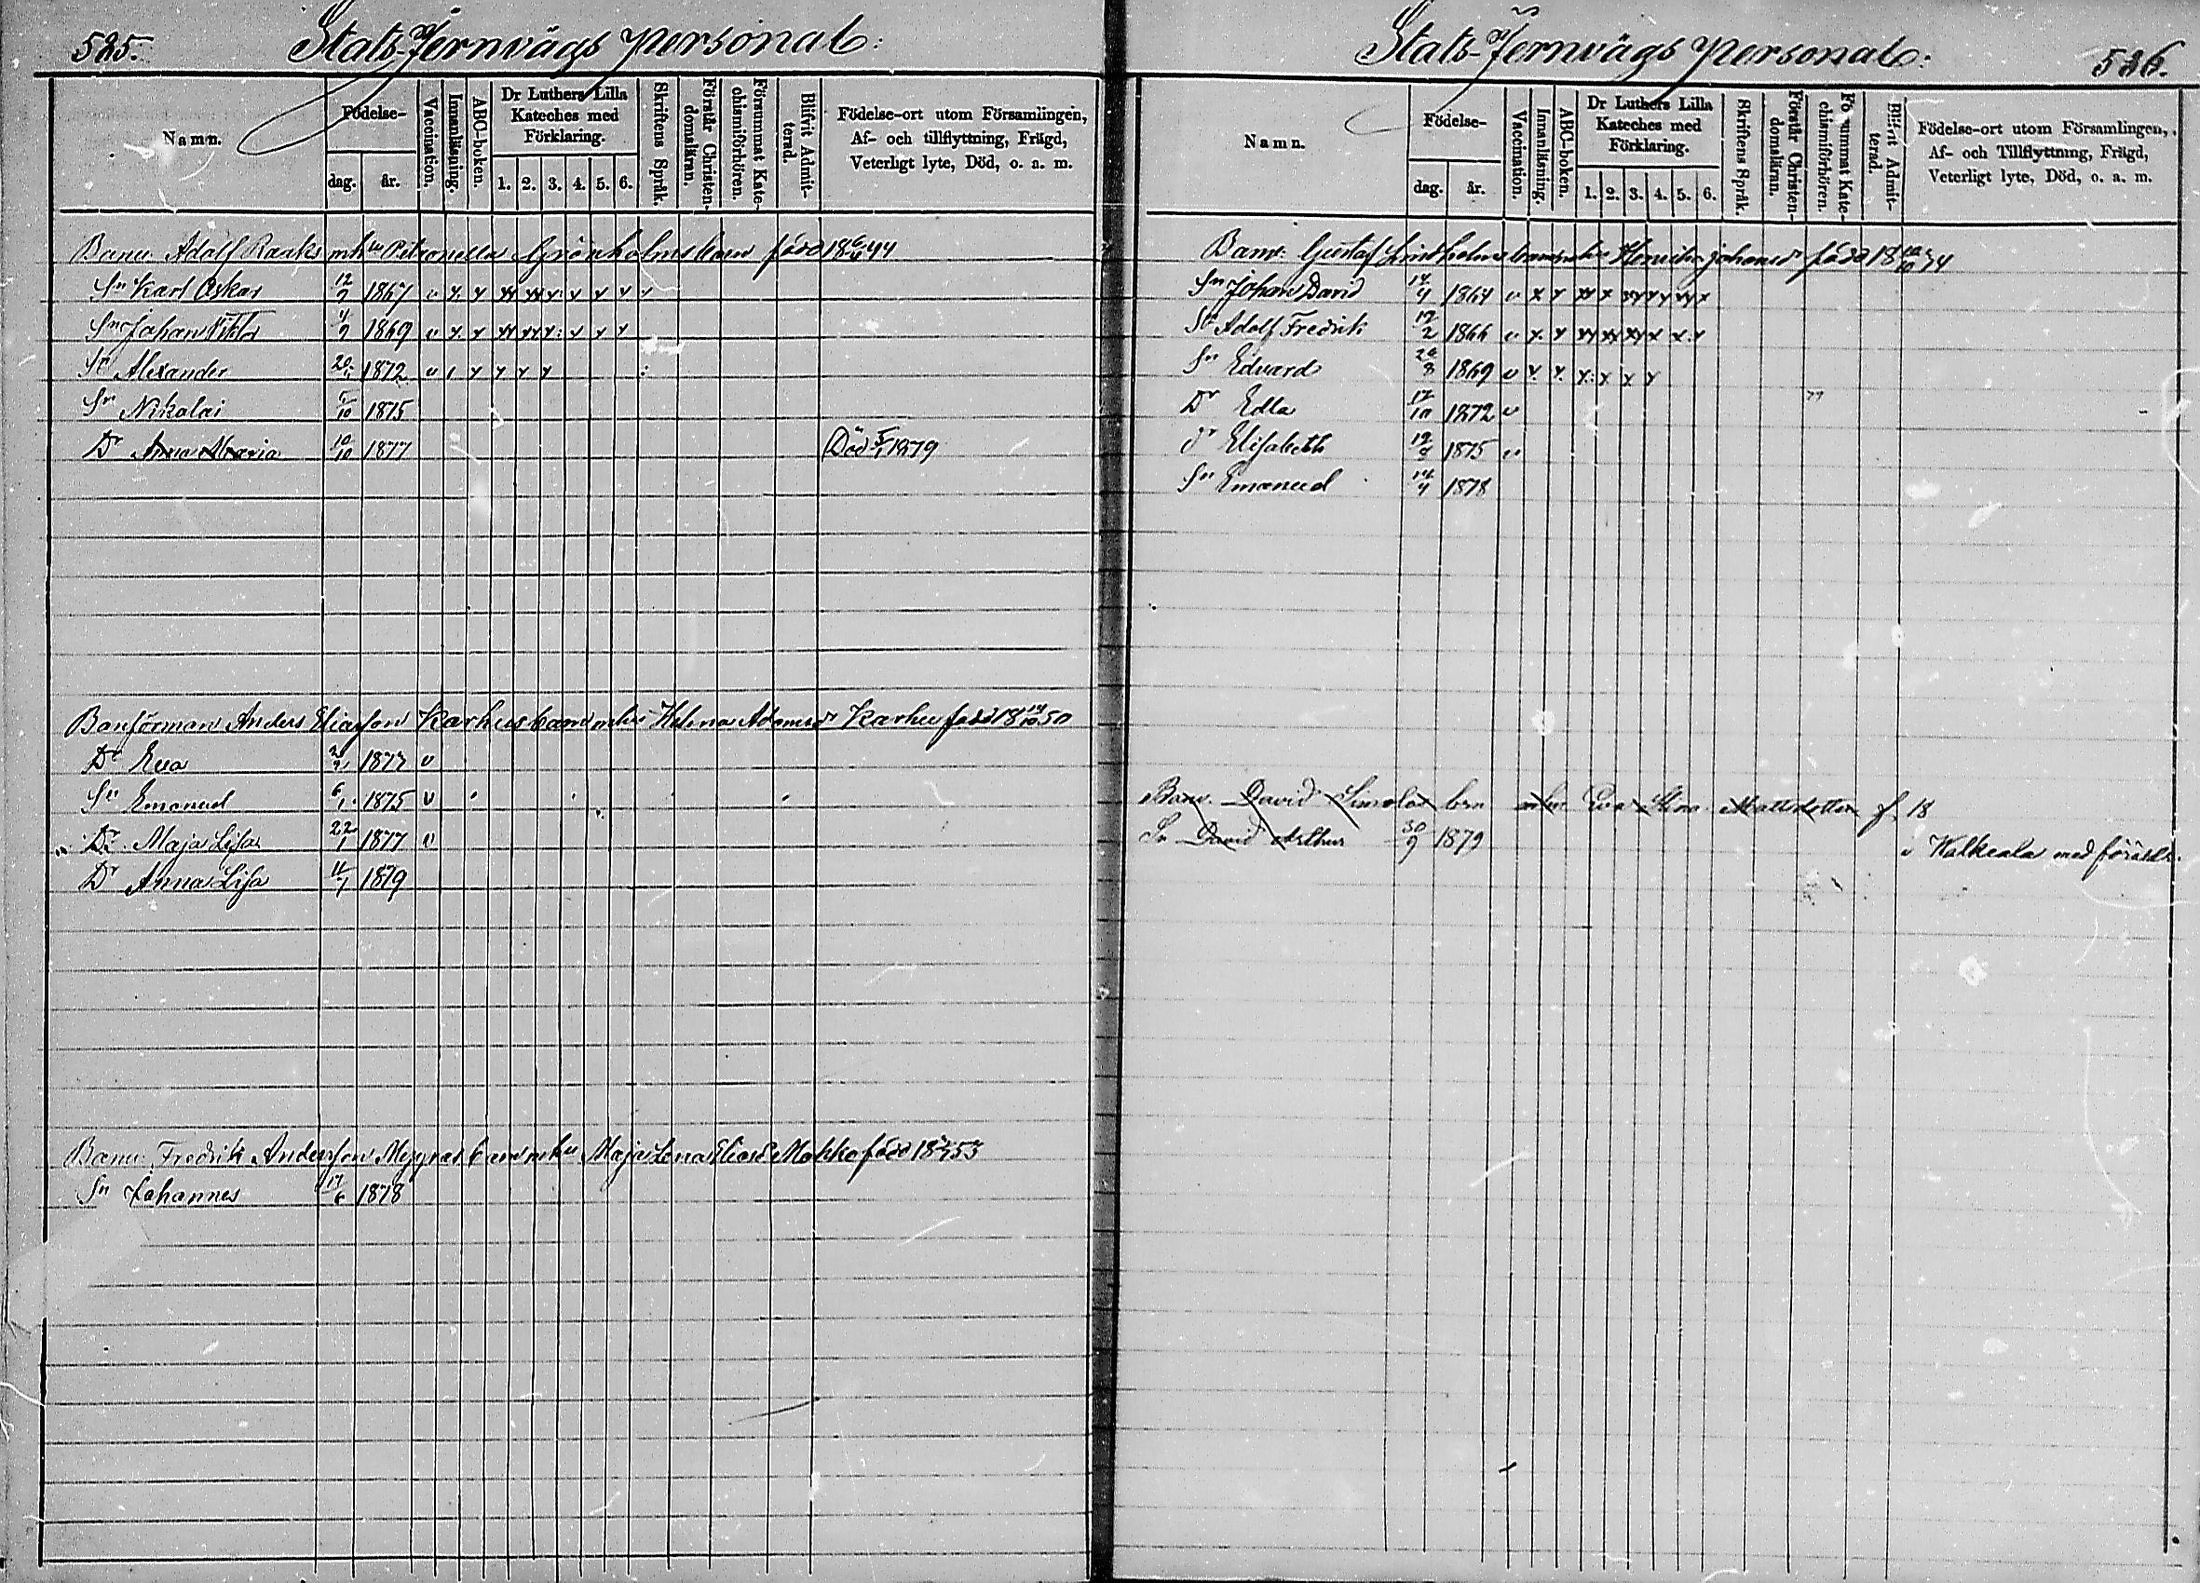 525.
Stats-Jernvägs personal:
Namn.
Födelse-
dag. år.
Vaccination.
Innanläsning.
ABC-boken.
Dr Luthers Lilla
Kateches med
Förklaring.
1. 2. 3. 4. 5. 6.
Skriftens Språk.
Förstår Christen-
domsläran.
Försummat Kate-
chismiförhören.
Blifvit Admit-
terad.
Födelse-ort utom Församlingen,
Af- och tillflyttning, Frägd,
Veterligt lyte, Död, o. a. m.
Banv. Adolf Raaks mhu Petronella Grönholms barn född 18 44
Sn Karl Oskar 12/7 1867 v
Sn Johan Viktor 1869 v
Sn Alexander 1872 v
Sn Nikolai 1875
Dr Anna Maria 10/10 1877 Död 1879
Banförman Anders Eliasson Karhus barn mhu Helena Adamsdr Karhu född 18 50
Dr Eva 1873 v
Sn Emanuel 6/1 1875 v
Dr Maja Lisa 22/1 1877 v
Dr Anna Lisa 11/1 1879
Banv. Fredrik Andersson Myyräs barn mhu Maja Lena Eliasdr Mokka född 18 53
Sn Johannes 17/6 1878
Stats-Jernvägs personal:
526.
Namn.
Födelse-
dag. år.
Vaccination.
Innanläsning.
ABC-boken.
Dr Luthers Lilla
Kateches med
Förklaring.
1. 2. 3. 4. 5. 6.
Skriftens Språk.
Förstår Christen-
domsläran.
Försummat Kate-
chismiförhören.
Blifvit Admit-
terad.
Födelse-ort utom Församlingen,
Af- och Tillflyttning, Frägd,
Veterligt lyte, Död, o. a. m.
Banv. Gustaf Lindholms barn mhu Henrika Johansdr född 18 34
Sn Johan David 14/4 1864 v
Sn Adolf Fredrik 12/2 1866 v
Sn Edvard 26/8 1869 v
Dr Edla 12/10 1872 v
Dr Elisabeth 1875 v
Sn Emanuel 14/4 1878
Banv. David Simolas brn mhu Eva Stina Mattsdotter f. 18
Sn David Arthur 30/9 1879 Walkeala med föräldr.